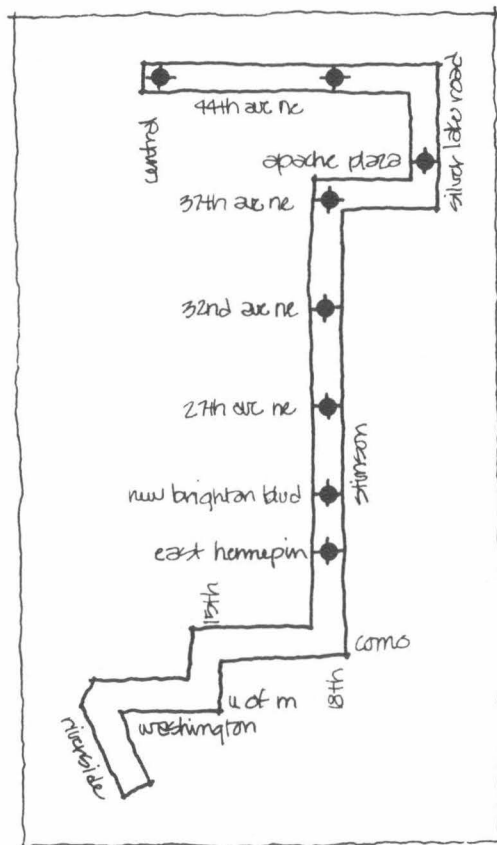 44th ave ne
central
silver lake road
apache plaza
37th ave ne
32nd ave ne
27th ave ne
stinson
new brighton blvd
east hennepin
15th
como
18th
u of m
washington
riverside